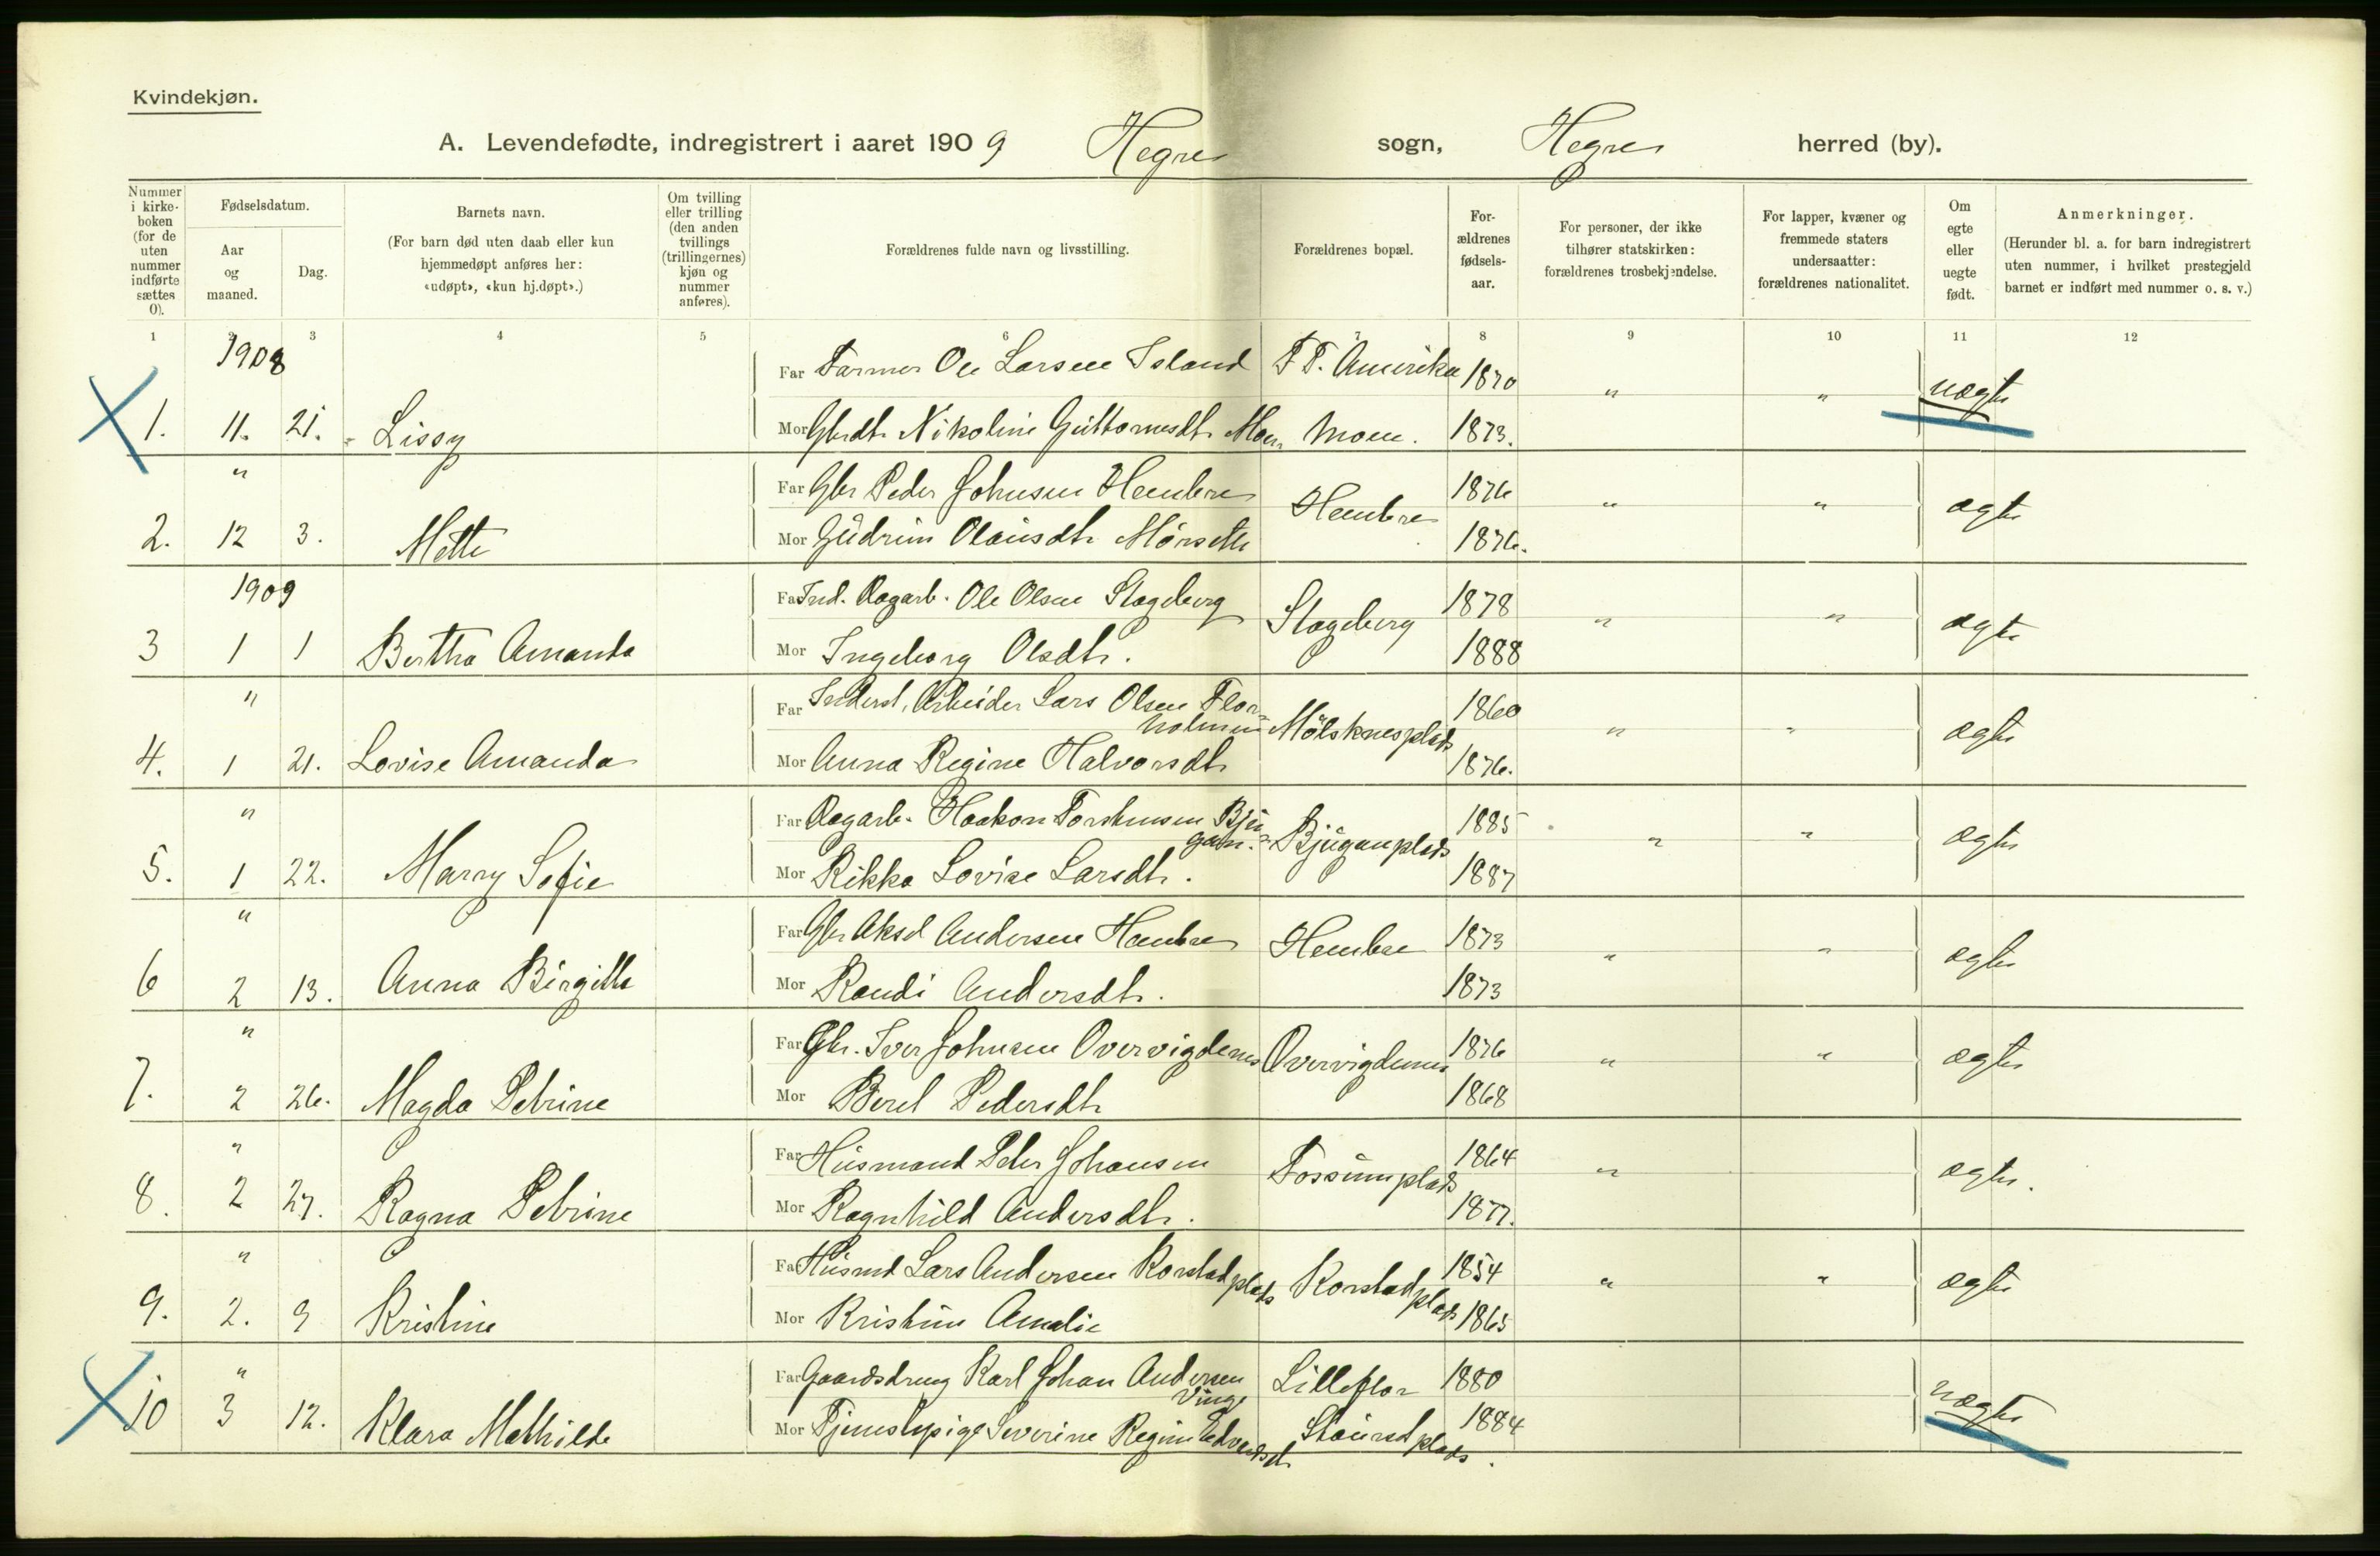 Kvindekjøn.
A. Levendefødte, indregistrert i aaret 1909 Hegre sogn, Hegre herred (by).
Nummer i kirke-boken (for de uten nummer indførte sættes 0).
Fødselsdatum.
Aar og maaned.
Dag.
Barnets navn.
(For barn død uten daab eller kun hjemmedøpt anføres her: «udøpt», «kun hj.døpt».)
Om tvilling eller trilling (den anden tvillings (trillingernes) kjøn og nummer anføres).
Forældrenes fulde navn og livsstilling.
Forældrenes bopæl.
For-ældrenes fødsels-aar.
For personer, der ikke tilhører statskirken: forældrenes trosbekjendelse.
For lapper, kvæner og fremmede staters undersaatter: forældrenes nationalitet.
Om egte eller uegte født.
Anmerkninger.
(Herunder bl. a. for barn indregistrert uten nummer, i hvilket prestegjeld barnet er indført med nummer o. s. v.)
1 2 3 4 5 6 7 8 9 10 11 12
1908
Far Farmer Ole Larsen Island T. T. Amerika 1870 " " uægte
1. 11. 21. Lissy Mor Gbrdt. Nikoline Guttormsdt. Moen Moen. 1873.
" Far Gbr Peder Johnsen Hembre Hembre 1876 " " ægte
2. 12 3. Mette Mor Gudrun Olausdtr Mørsete 1876.
1909
Far Ind. Dagarb. Ole Olsen Stageberg Stageberg 1878 " " ægte
3 1 1 Bertha Amanda Mor Ingeborg Olsdtr. 1888
" Far Inderst, Arbeider Lars Olsen Flor- 1860
holmen Mölsknesplads " " ægte
4. 1 21. Lovise Amanda Mor Anna Regine Halvorsdtr 1876.
" Far Dagarb. Haakon Torstensen Bju- 1885
gan. Bjuganplads " " ægte
5. 1 22. Marry Sofie Mor Rikka Lovise Larsdtr. 1887
" Far Gbr Aksel Andersen Hembre Hembre 1873 " " ægte
6 2 13. Anna Birgitte Mor Randi Andersdtr. 1873
" Far Gbr. Iver Johnsen Overvigdenes Overvigdenes 1876 " " ægte
7. 2 26. Magda Petrine Mor Beret Pedersdtr 1868
" Far Husmand Peter Johansen Fossumplads 1864 " ægte.
8. 2 27. Ragna Petrine Mor Ragnhild Andersdtr. 1877.
" Far Husmd Lars Andersen Korstadplads Korstadplads 1854 " " ægte
9. 2. 9 Kristine Mor Kristine Amalie 1865
" Far Gaardsdreng Karl Johan Andersen Lilleflor 1880
Vinge uægte
10 3 12. Klara Mathilde Mor Tjenestepige Severine Regine Edvardsdt plads. 1884